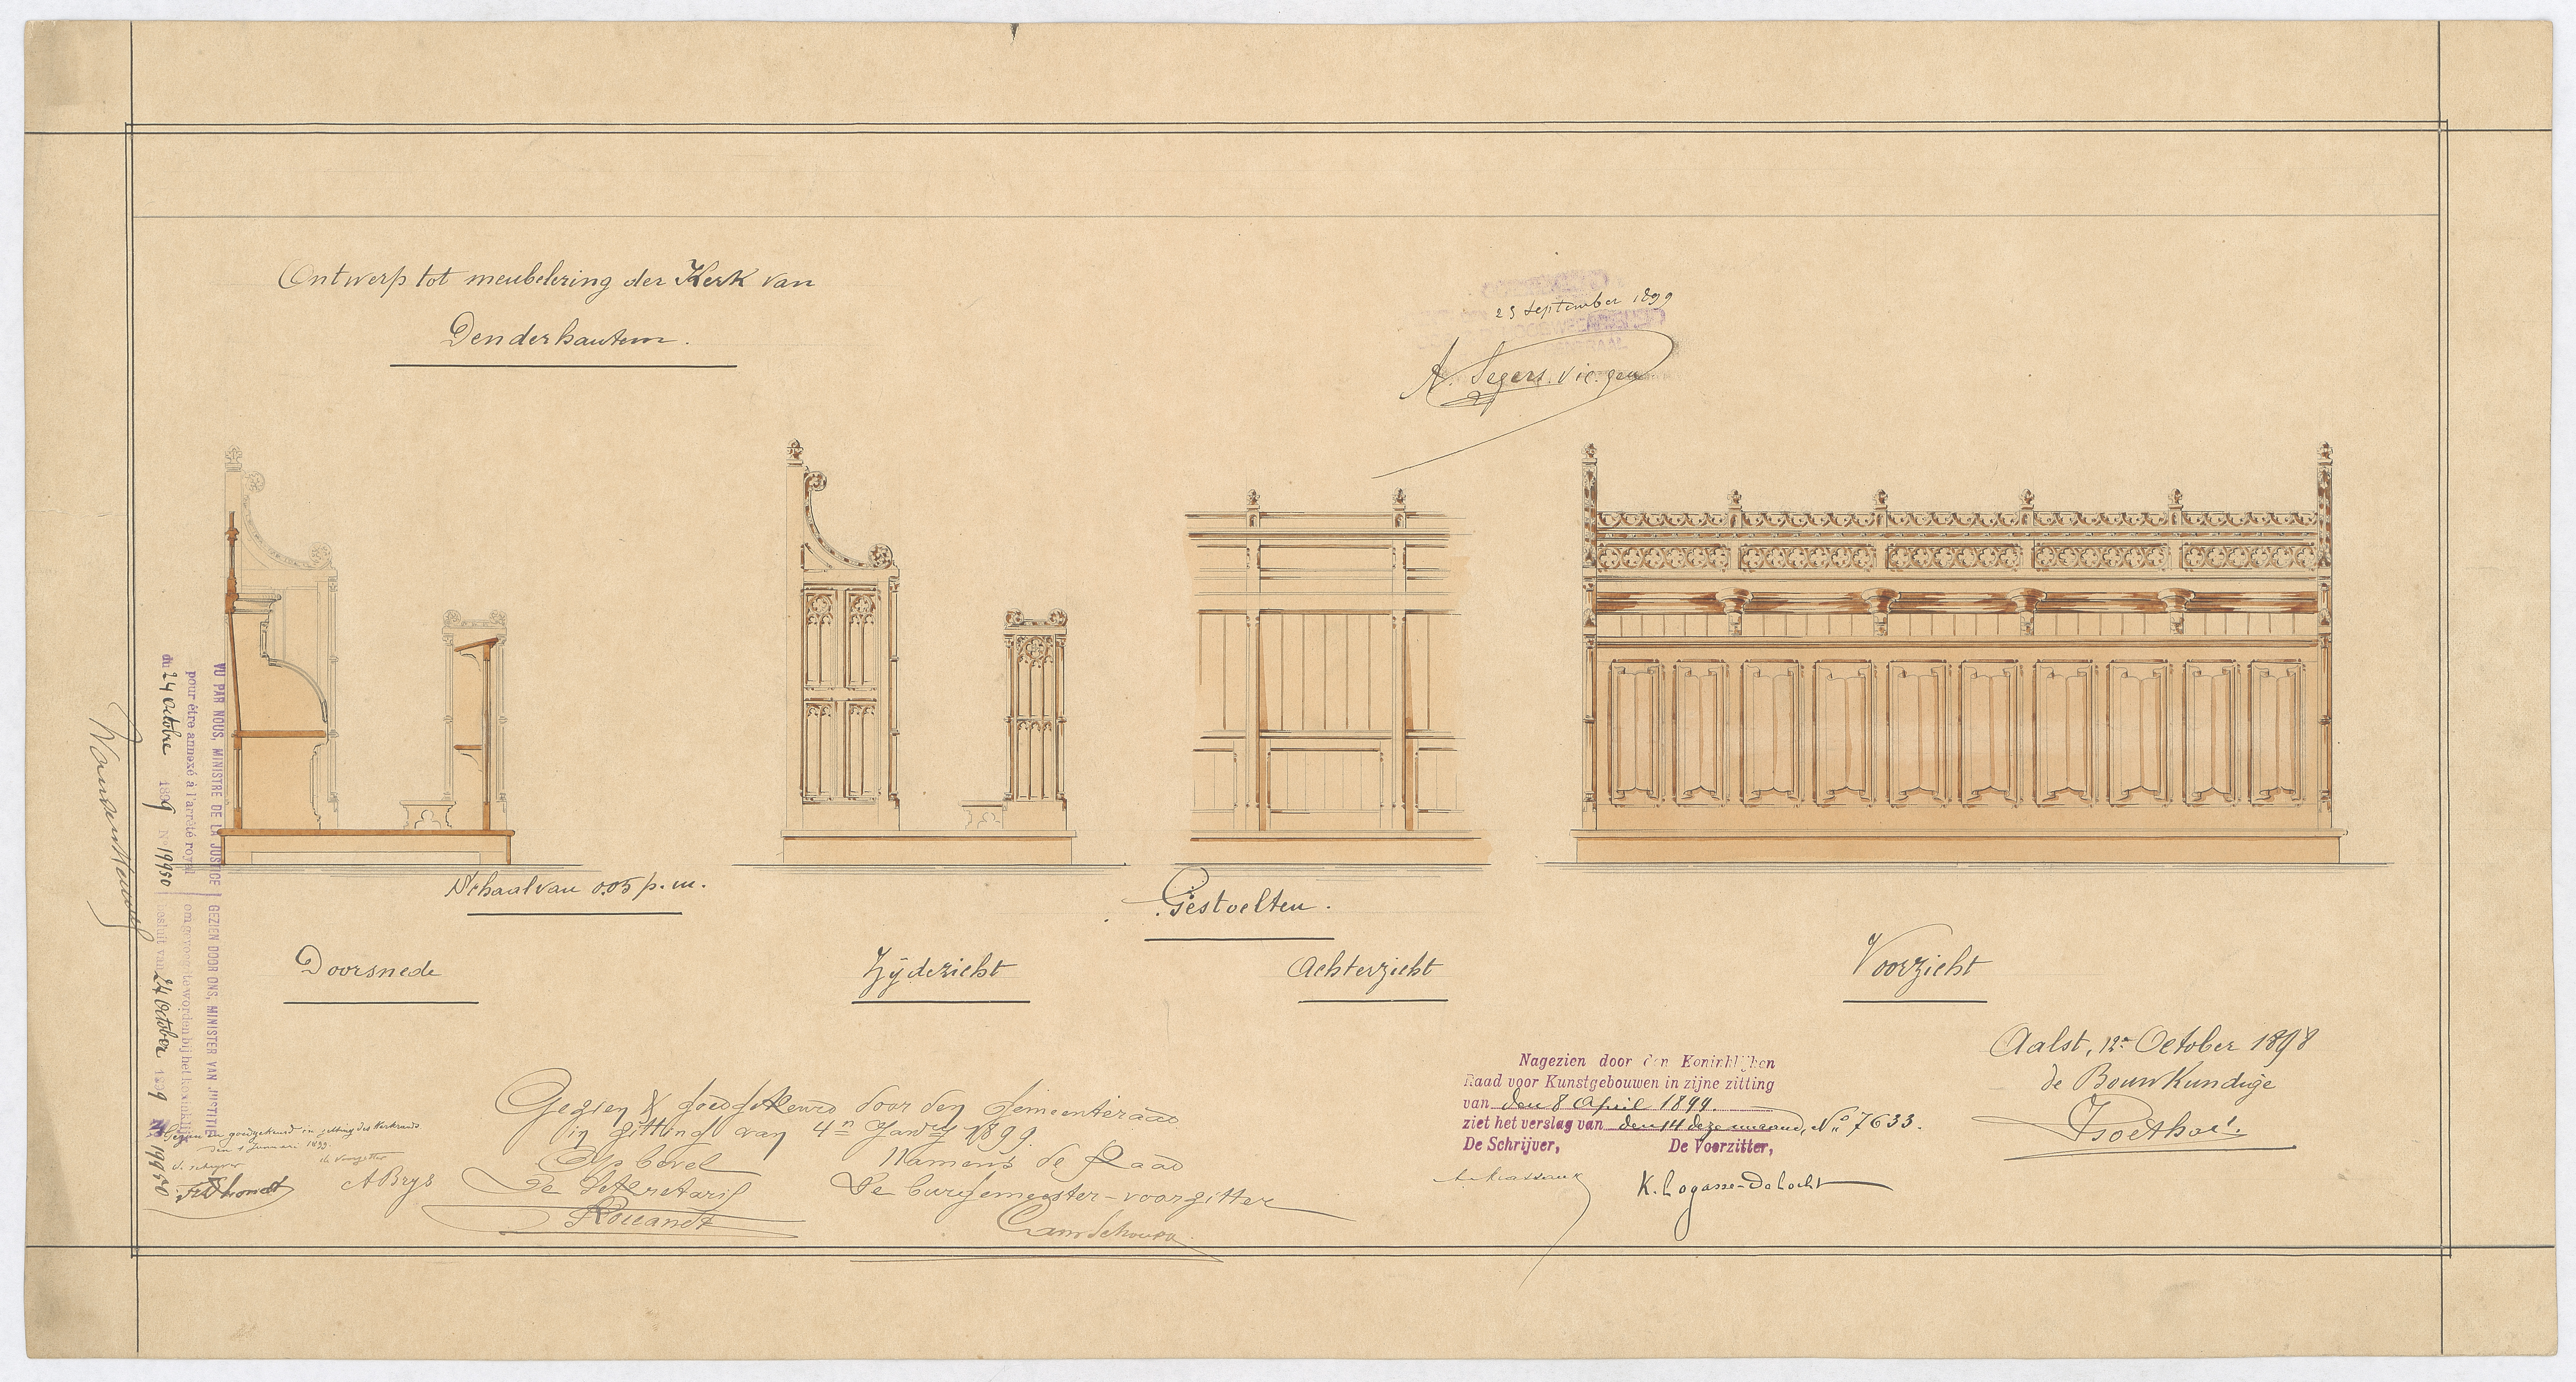 Ontwerp tot meubelering der Kerk van
Denderhautem.
23 September 1899
A. Segers. vic. gen
Schaal van 0.05 p. m.
Gestoelten.
Doorsnede
Zijdezicht
Achterzicht
Voorzicht
VU PAR NOUS, MINISTRE DE LA JUSTICE
pour être annexé à l'arrêté royal
du 24 Octobre 1899 N 19950
GEZIEN DOOR ONS, MINISTER VAN JUSTITIE
om gevoegd te worden bij het koninklijk
besluit van 24 October 1899 N 19950
Gezien en goedgekeurd in zitting des Kerkraads
den 1 Januari 1899.
de schrijver
de Voorzitter
A Brys
Gezien & goedgekeurd door den Gemeenteraad
in zitting van 4n Janry 1899.
Op bevel
De Sekretaris
Namens de Raad
De burgemeester-voorzitter
Nagezien door den Koninklijken
Raad voor Kunstgebouwen in zijne zitting
van den 8 April 1899.
ziet het verslag van den 14 dezer maand, No 7633.
De Schrijver,
De Voorzitter,
K. Lagasse-De Locht
Aalst, 12n October 1898
de Bouwkundige